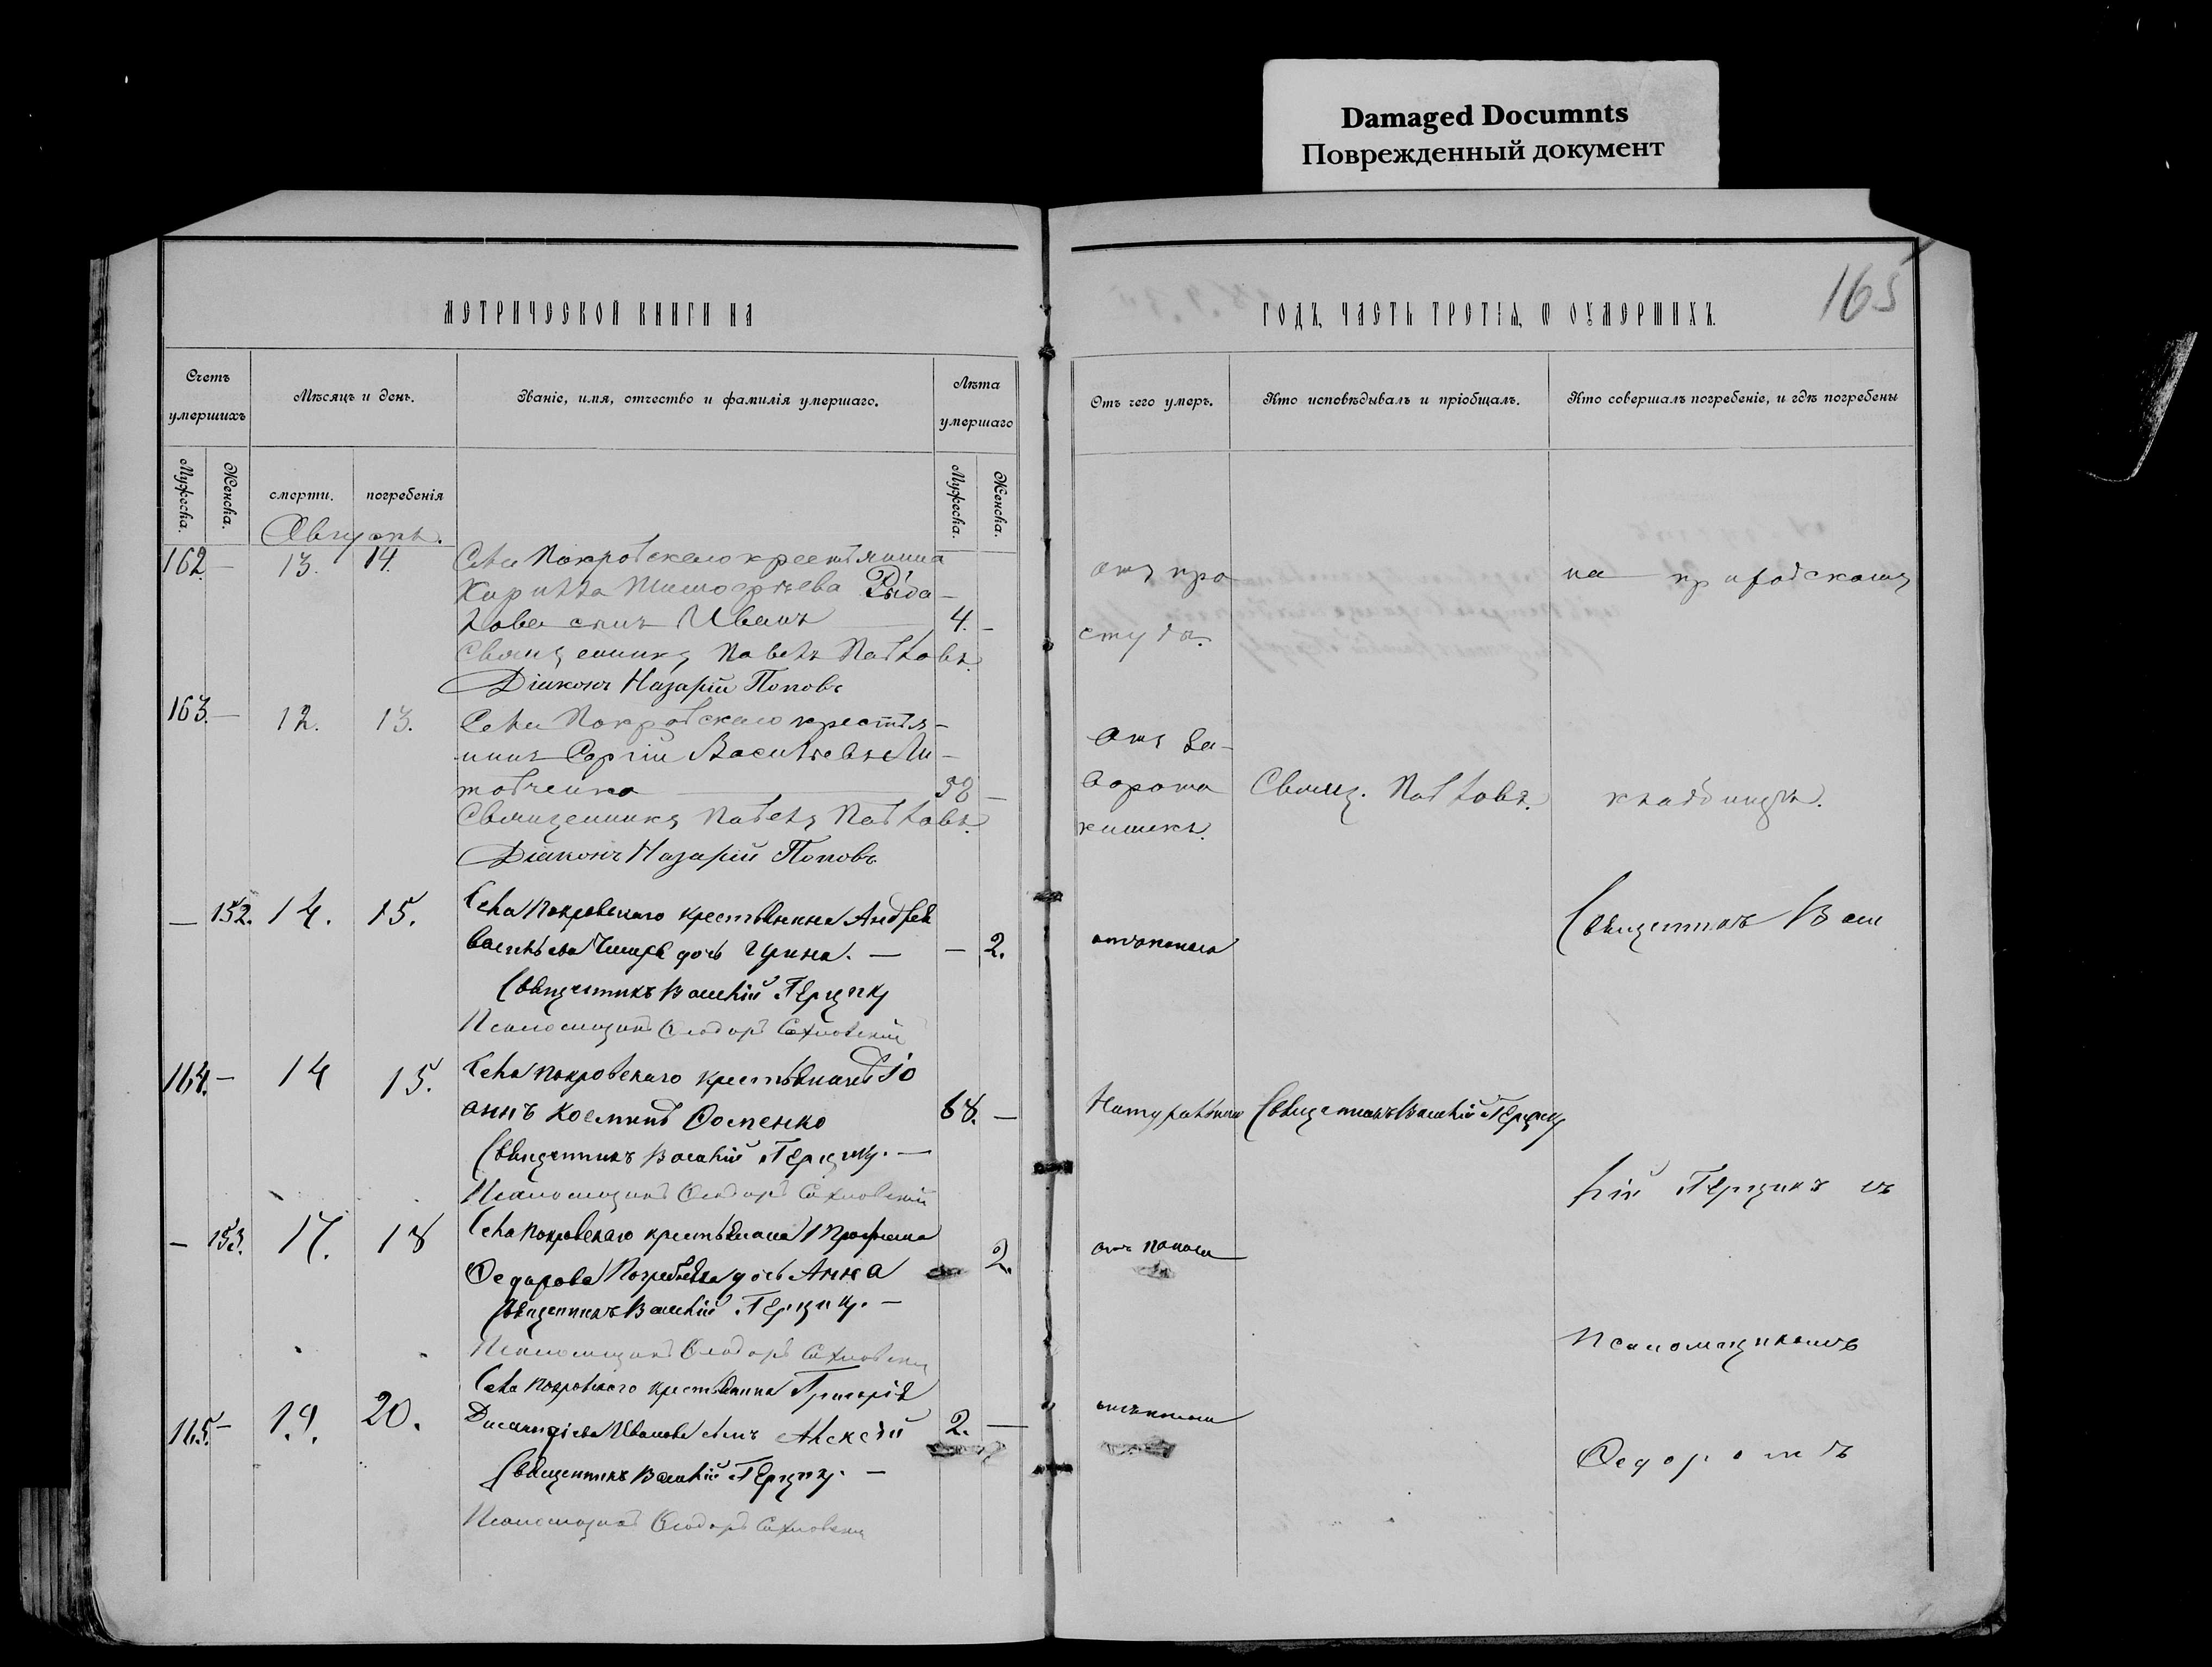 Damaged Documnts
Поврежденный документ
165
МЕТРИЧЕСКОЙ КНИГИ НА
ГОДЪ, ЧАСТЬ ТРЕТІЯ, Ѿ ОУМЕРШИХЪ.
Счетъ умершихъ
Мѣсяцъ и день.
Званіе, имя, отчество и фамилія умершаго.
Лѣта умершаго
Отъ чего умеръ.
Кто исповѣдывалъ и пріобщалъ.
Кто совершалъ погребеніе, и гдѣ погребены
Мужеска.
Женска.
смерти.
погребенія
Мужеска.
Женска.
Августъ.
162 — 13. 14. Села Покровскаго крестьянина
Кирилла Тимофѣева
сынъ Иванъ — 4. —
Священникъ Павелъ Павловъ.
Діаконъ Назарій Поповъ
отъ про
студы.
на приходскомъ
163. — 12. 13. Села Покровскаго крестья-
нинъ Сергій Васильевъ Ли-
товченко — 58 —
Священникъ Павелъ Павловъ.
Діаконъ Назарій Поповъ
Отъ за-
ворота
кишекъ.
Свящ. Павловъ.
кладбищѣ.
— 152. 14. 15. Села Покровскаго крестьянина Андрея
Васильева дочь Ирина. — — 2.
Священникъ Василій Герцыкъ
Псаломщикъ Ѳеодоръ Сахновскій
отъ поноса
Священникъ Васи
164. — 14 15. Села Покровскаго крестьянинъ Іо
аннъ Косминъ Остенко 68. —
Священникъ Василій Герцыкъ. —
Псаломщикъ Ѳеодоръ Сахновскій
Натуральною
Священникъ Василій Герцыкъ
лій Герцыкъ съ
— 153. 17. 18 Села Покровскаго крестьянина Трофима
Ѳедорова дочь Анна 2.
Священникъ Василій Герцыкъ. —
Псаломщикъ Ѳеодоръ Сахновскій
отъ поноса
Псаломщикомъ
165. — 19. 20. Села Покровскаго крестьянина Григорія
Иванова сынъ Алексѣй 2. —
Священникъ Василій Герцыкъ. —
Псаломщикъ Ѳеодоръ Сахновскій
отъ поноса
Ѳедоромъ